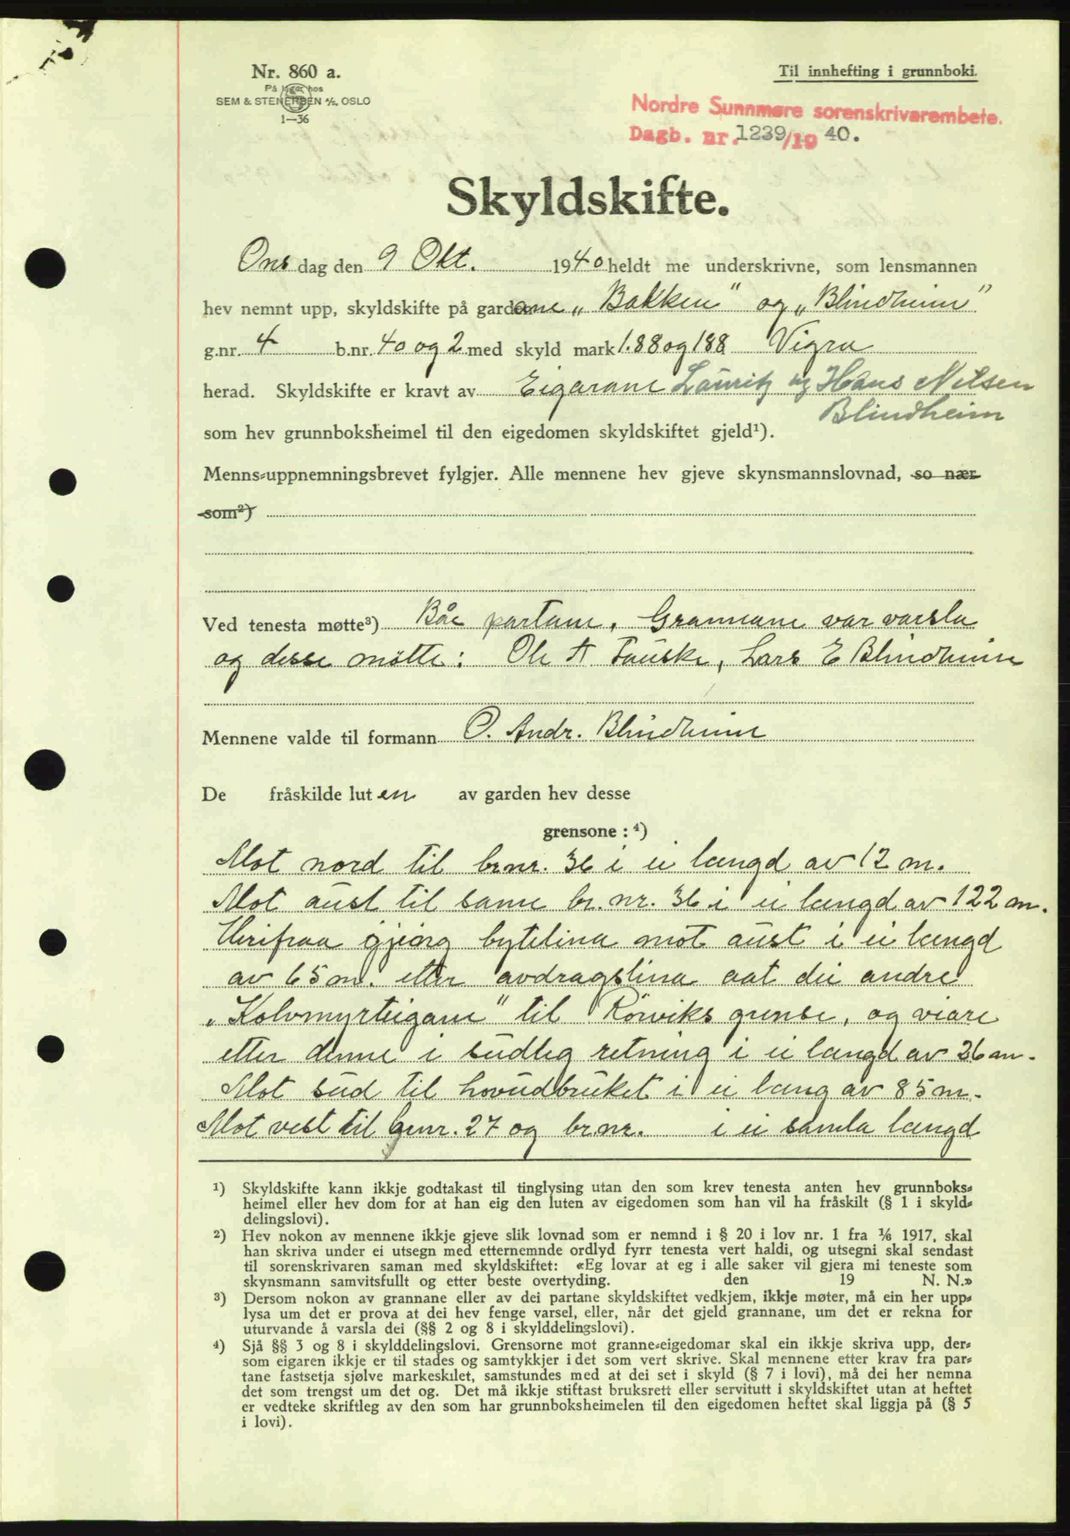 Nr. 860 a.
På lager hos
SEM & STENERSEN A/S, OSLO
1—36
Til innhefting i grunnboki.
Nordre Sunnmøre sorenskrivarembete.
Dagb. nr. 1239/1940.
Skyldskifte.
Ons dag den 9 Okt. 1940 heldt me underskrivne, som lensmannen
hev nemnt upp, skyldskifte på gardane „Bakken" og „Blindheim"
g.nr. 4 b.nr. 40 og 2 med skyld mark 1.88 og 188 Vigra
herad. Skyldskifte er kravt av Eigarane Lauritz og Hans Nilsen
Blindheim
som hev grunnboksheimel til den eigedomen skyldskiftet gjeld¹).
Menns-uppnemningsbrevet fylgjer. Alle mennene hev gjeve skynsmannslovnad, so nær
som²)
Ved tenesta møtte³) Båe partane, Grannane var varsla
og desse møtte: Ole A Fauske, Lars E Blindheim
Mennene valde til formann O. Andr. Blindheim
De fråskilde luten av garden hev desse
grensone: ⁴)
Mot nord til brnr. 36 i ei længd av 12 m.
Mot aust til same br. nr. 36 i ei længd av 122 m.
Herifraa gjeng bytelina mot aust i ei længd
av 65 m. etter avdragslina aat dei andre
„Kolvmyrteigane" til Rörviks grense, og viare
etter denne i sudleg retning i ei længd av 26 m.
Mot sud til hovudbruket i ei læng av 85 m.
Mot vest til Gnr. 27 og brnr. i ei samla længd
¹) Skyldskifte kann ikkje godtakast til tinglysing utan den som krev tenesta anten hev grunnboks-
heimel eller hev dom for at han eig den luten av eigedomen som han vil ha fråskilt (§ 1 i skyld-
delingslovi).
²) Hev nokon av mennene ikkje gjeve slik lovnad som er nemnd i § 20 i lov nr. 1 fra ⅙ 1917, skal
han skriva under ei utsegn med etternemnde ordlyd fyrr tenesta vert haldi, og utsegni skal sendast
til sorenskrivaren saman med skyldskiftet: «Eg lovar at eg i alle saker vil gjera mi teneste som
skynsmann samvitsfullt og etter beste overtyding. den 19 N. N.»
³) Dersom nokon av grannane eller av dei partane skyldskiftet vedkjem, ikkje møter, må ein her upp-
lysa um det er prova at dei hev fenge varsel, eller, når det gjeld grannane, um det er rekna for
uturvande å varsla dei (§§ 2 og 8 i skylddelingslovi).
⁴) Sjå §§ 3 og 8 i skylddelingslovi. Grensorne mot granne-eigedomar skal ein ikkje skriva upp, der-
som eigaren ikkje er til stades og samtykkjer i det som vert skrive. Skal mennene etter krav fra par-
tane fastsetja sjølve markeskilet, samstundes med at dei set i skyld (§ 7 i lovi), må dei her nemna
det som trengst um det og. Det må ikkje stiftast bruksrett eller servitutt i skyldskiftet utan at heftet
er vedteke skriftleg av den som har grunnboksheimelen til den eigedomen heftet skal liggja på (§ 5
i lovi).